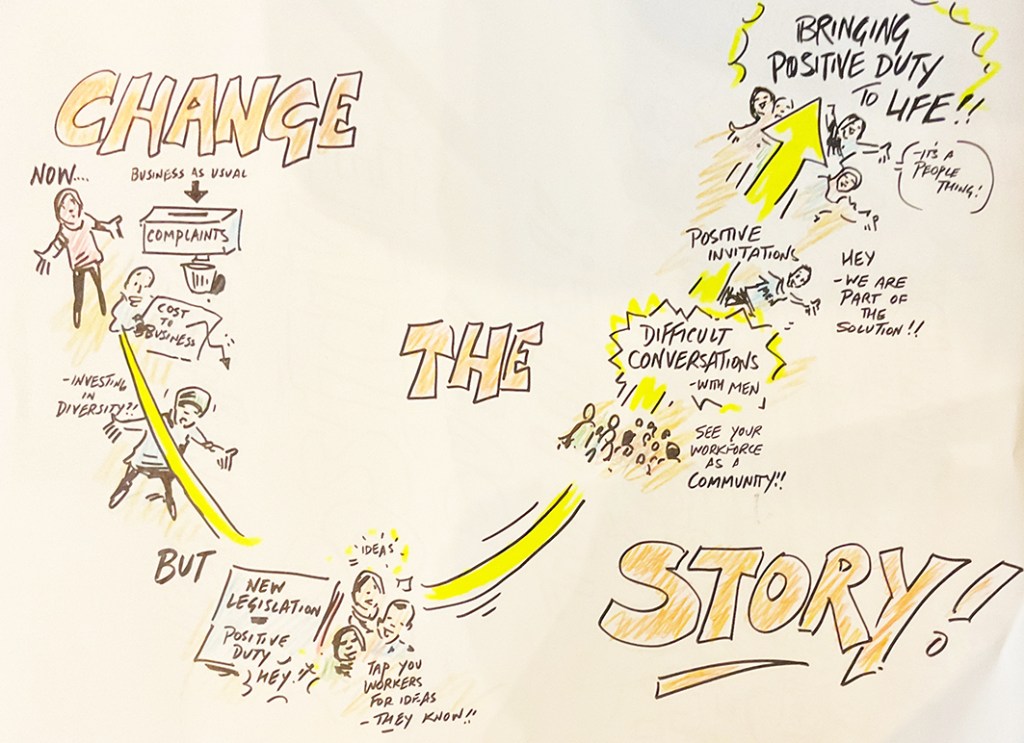 CHANGE
NOW....
BUSINESS AS USUAL
COMPLAINTS
COST
TO
BUSINESS
-INVESTING
IN
DIVERSITY?!
BUT
NEW
LEGISLATION
=
POSITIVE
DUTY
HEY!!
IDEAS
TAP YOU
WORKERS
FOR IDEAS
- THEY KNOW!!
THE
SEE YOUR
WORKFORCE
AS A
COMMUNITY!!
DIFFICULT
CONVERSATIONS
-WITH MEN
POSITIVE
INVITATIONS
HEY
-WE ARE
PART OF
THE
SOLUTION!!
BRINGING
POSITIVE DUTY
TO LIFE!!
-IT'S A
PEOPLE
THING!
STORY!